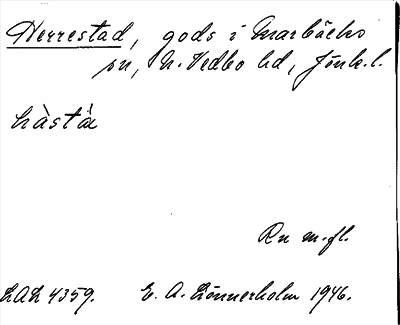 Herrestad, gods i Marbäcks
sn, N. Vedbo hd, Jönk. l.
hàstá
Rn m. fl.
LAL 4359. E. A. Lönnerholm 1946.